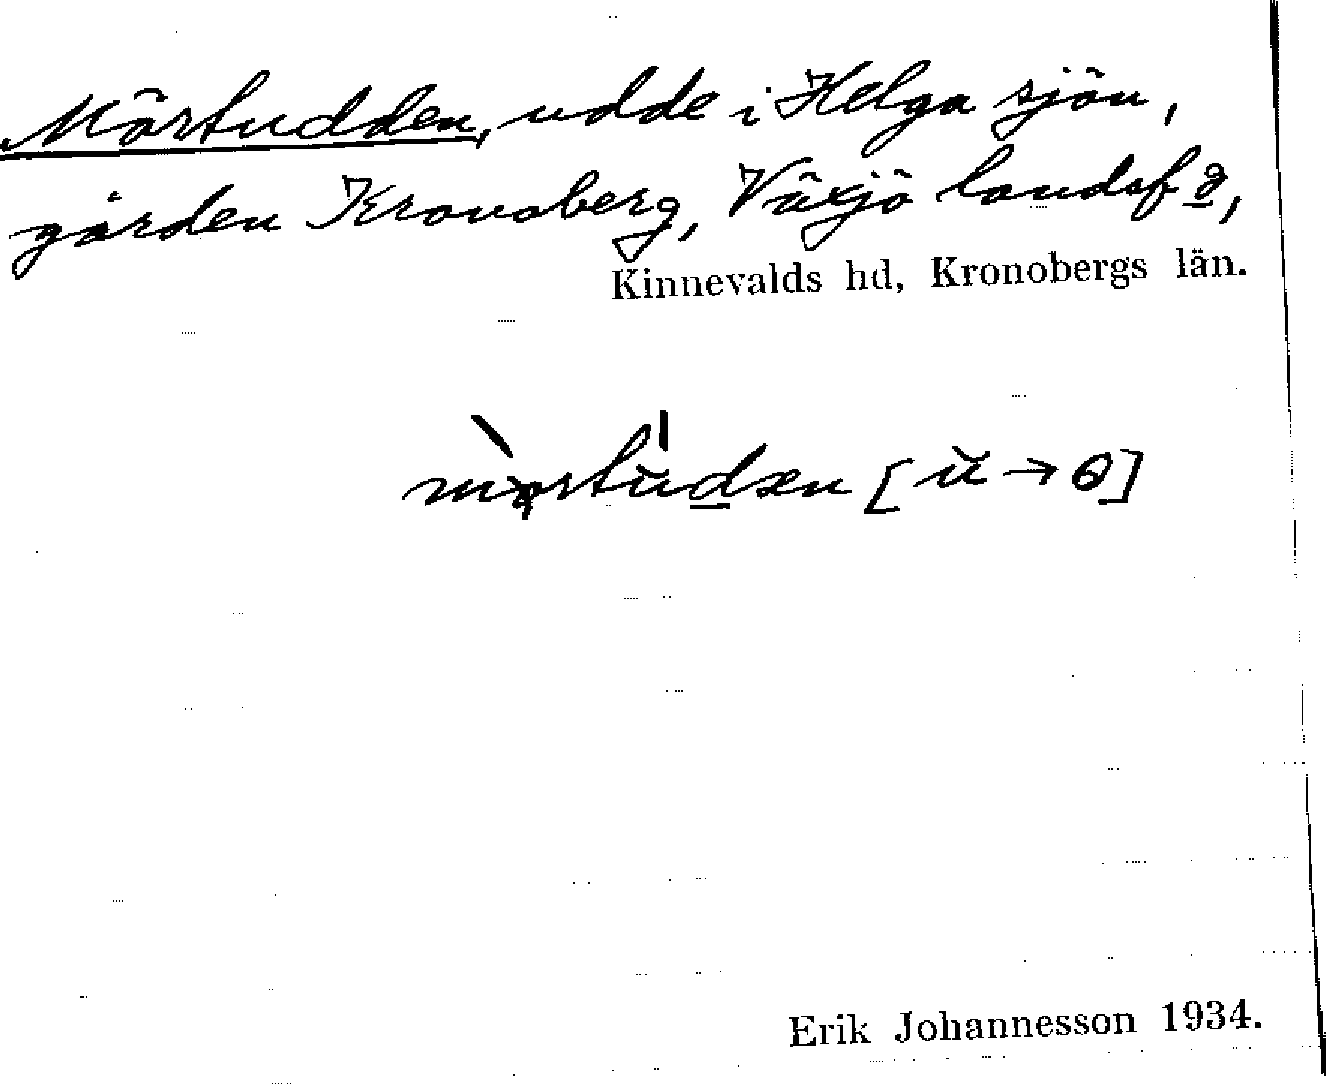 Mörtudden, udde i Helga sjön,
gården Kronoberg, Växjö landsf g,
Kinnevalds hd, Kronobergs län.
[ŭ → ɵ]
Erik Johannesson 1934.